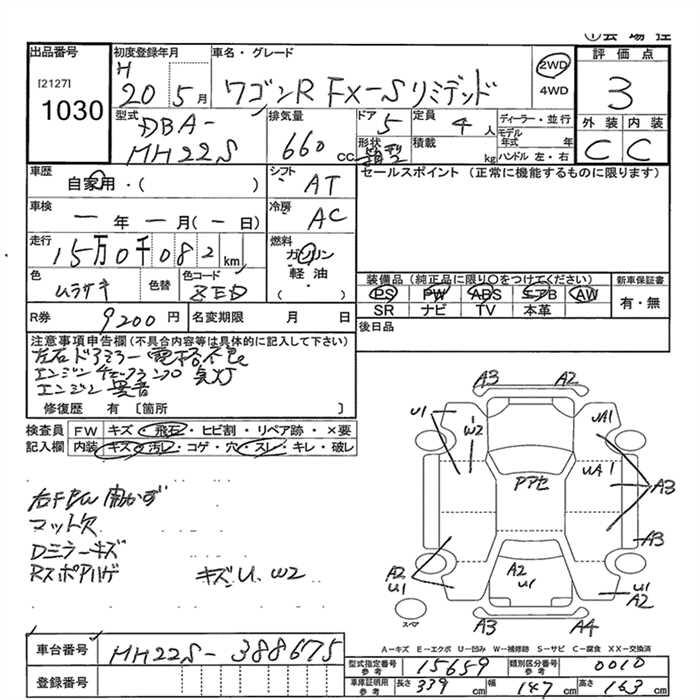 出品番号
[2127]
1030
初度登録年月
H 20 5月
車名・グレード
ワゴンR FX-Sリミテッド
2WD
4WD
評価点
3
外装 内装
C C
型式
DBA-
MH22S
排気量
660 cc
ドア 5
定員 4 人
形状 箱型
積載 kg
ディーラー・並行
モデル年式 年
ハンドル 左・右
車歴
自家用・( )
シフト AT
セールスポイント (正常に機能するものに限ります)
車検
ー年ー月(ー日)
冷房 AC
走行
15万0千082km
燃料
ガソリン
軽油・
( )
色
ムラサキ
色替
色コード
ZED
装備品(純正品に限り○をつけてください)
PS PW ABS エアB AW
SR ナビ TV 本革
新車保証書
有・無
R券 9200円
名変期限 月 日
後日品
注意事項申告欄(不具合内容等は具体的に記入して下さい)
左右ドアミラー電格不良
エンジンチェックランプ 点灯
エンジン異音
修復歴 有 [箇所 ]
検査員
記入欄
FW キズ・飛石・ヒビ割・リペア跡・×要
内装 キズ・汚レ・コゲ・穴・スレ・キレ・破レ
マット欠
Dミラーキズ
Rスポアハゲ
キズ、U、W2
A3 A2
U1
W2
UA1
UA1
A3
A3
Pアセ
A2
U1
A2
U1
U1
A2
スペア
A3 A4
A-キズ E-エクボ U-凹み W-補修跡 S-サビ C-腐食 XX-交換済
車台番号
MH22S-388675
登録番号
型式指定番号 参考 15659
類別区分番号 参考 0010
車庫証明用 参考 長さ 339 cm 幅 147 cm 高さ 163 cm